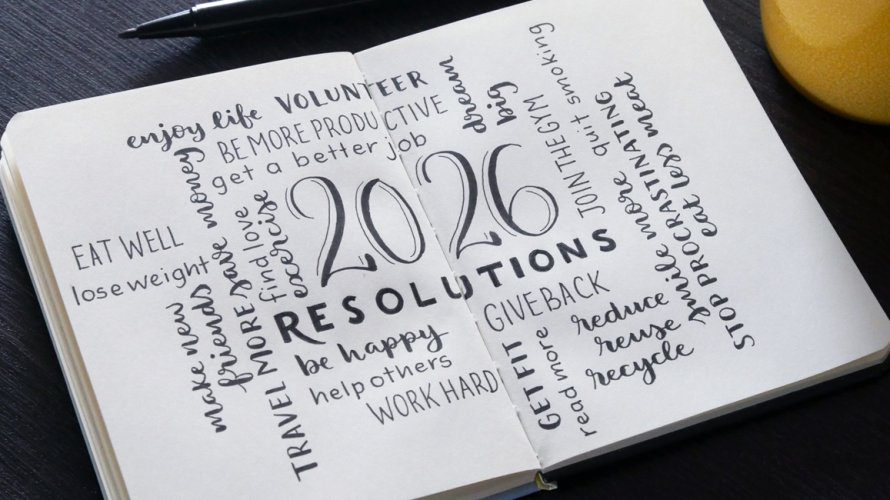 enjoy life
VOLUNTEER
BE MORE PRODUCTIVE
get a better job
dream
big
JOIN THE GYM
quit smoking
STOP PROCRASTINATING
eat less meat
smile more
save money
find love
exercise
2026
RESOLUTIONS
EAT WELL
lose weight
make new
friends
TRAVEL MORE
be happy
help others
WORK HARD
GIVE BACK
GET FIT
read more
reduce
reuse
recycle